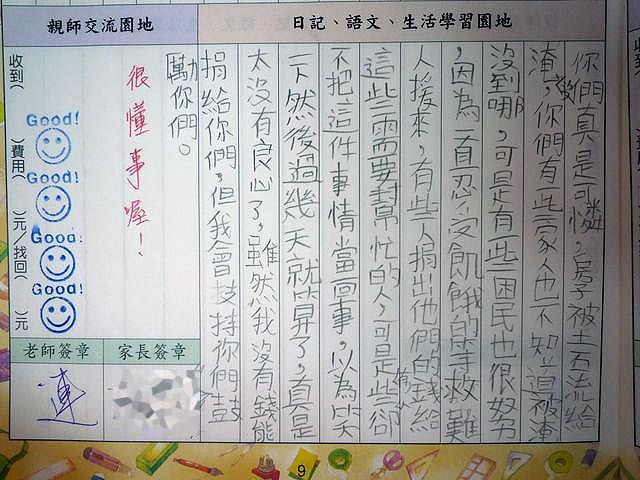 日記、語文、生活學習園地
你們真是可憐,房子被土石流給
淹沒,你們有些家人也不知道被淹
沒到哪,可是有些困民也很努力
,因為一直忍受飢餓的等救難
人援來,有些人捐出他們的錢給
這些需要幫忙的人,可是些卻
不把這件事情當回事,以為笑
一下然後過幾天就算了,真是
太沒有良心了,雖然我沒有錢能
捐給你們,但我會支持你們鼓
勵你們。
親師交流園地
很懂事喔!
收到( )費用( )元/找回( )元
Good!
Good!
Good!
Good!
家長簽章
老師簽章
連
9